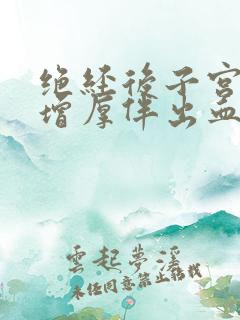 绝经后子宫
增厚伴出血
雲起夢溪
未经同意禁止转载